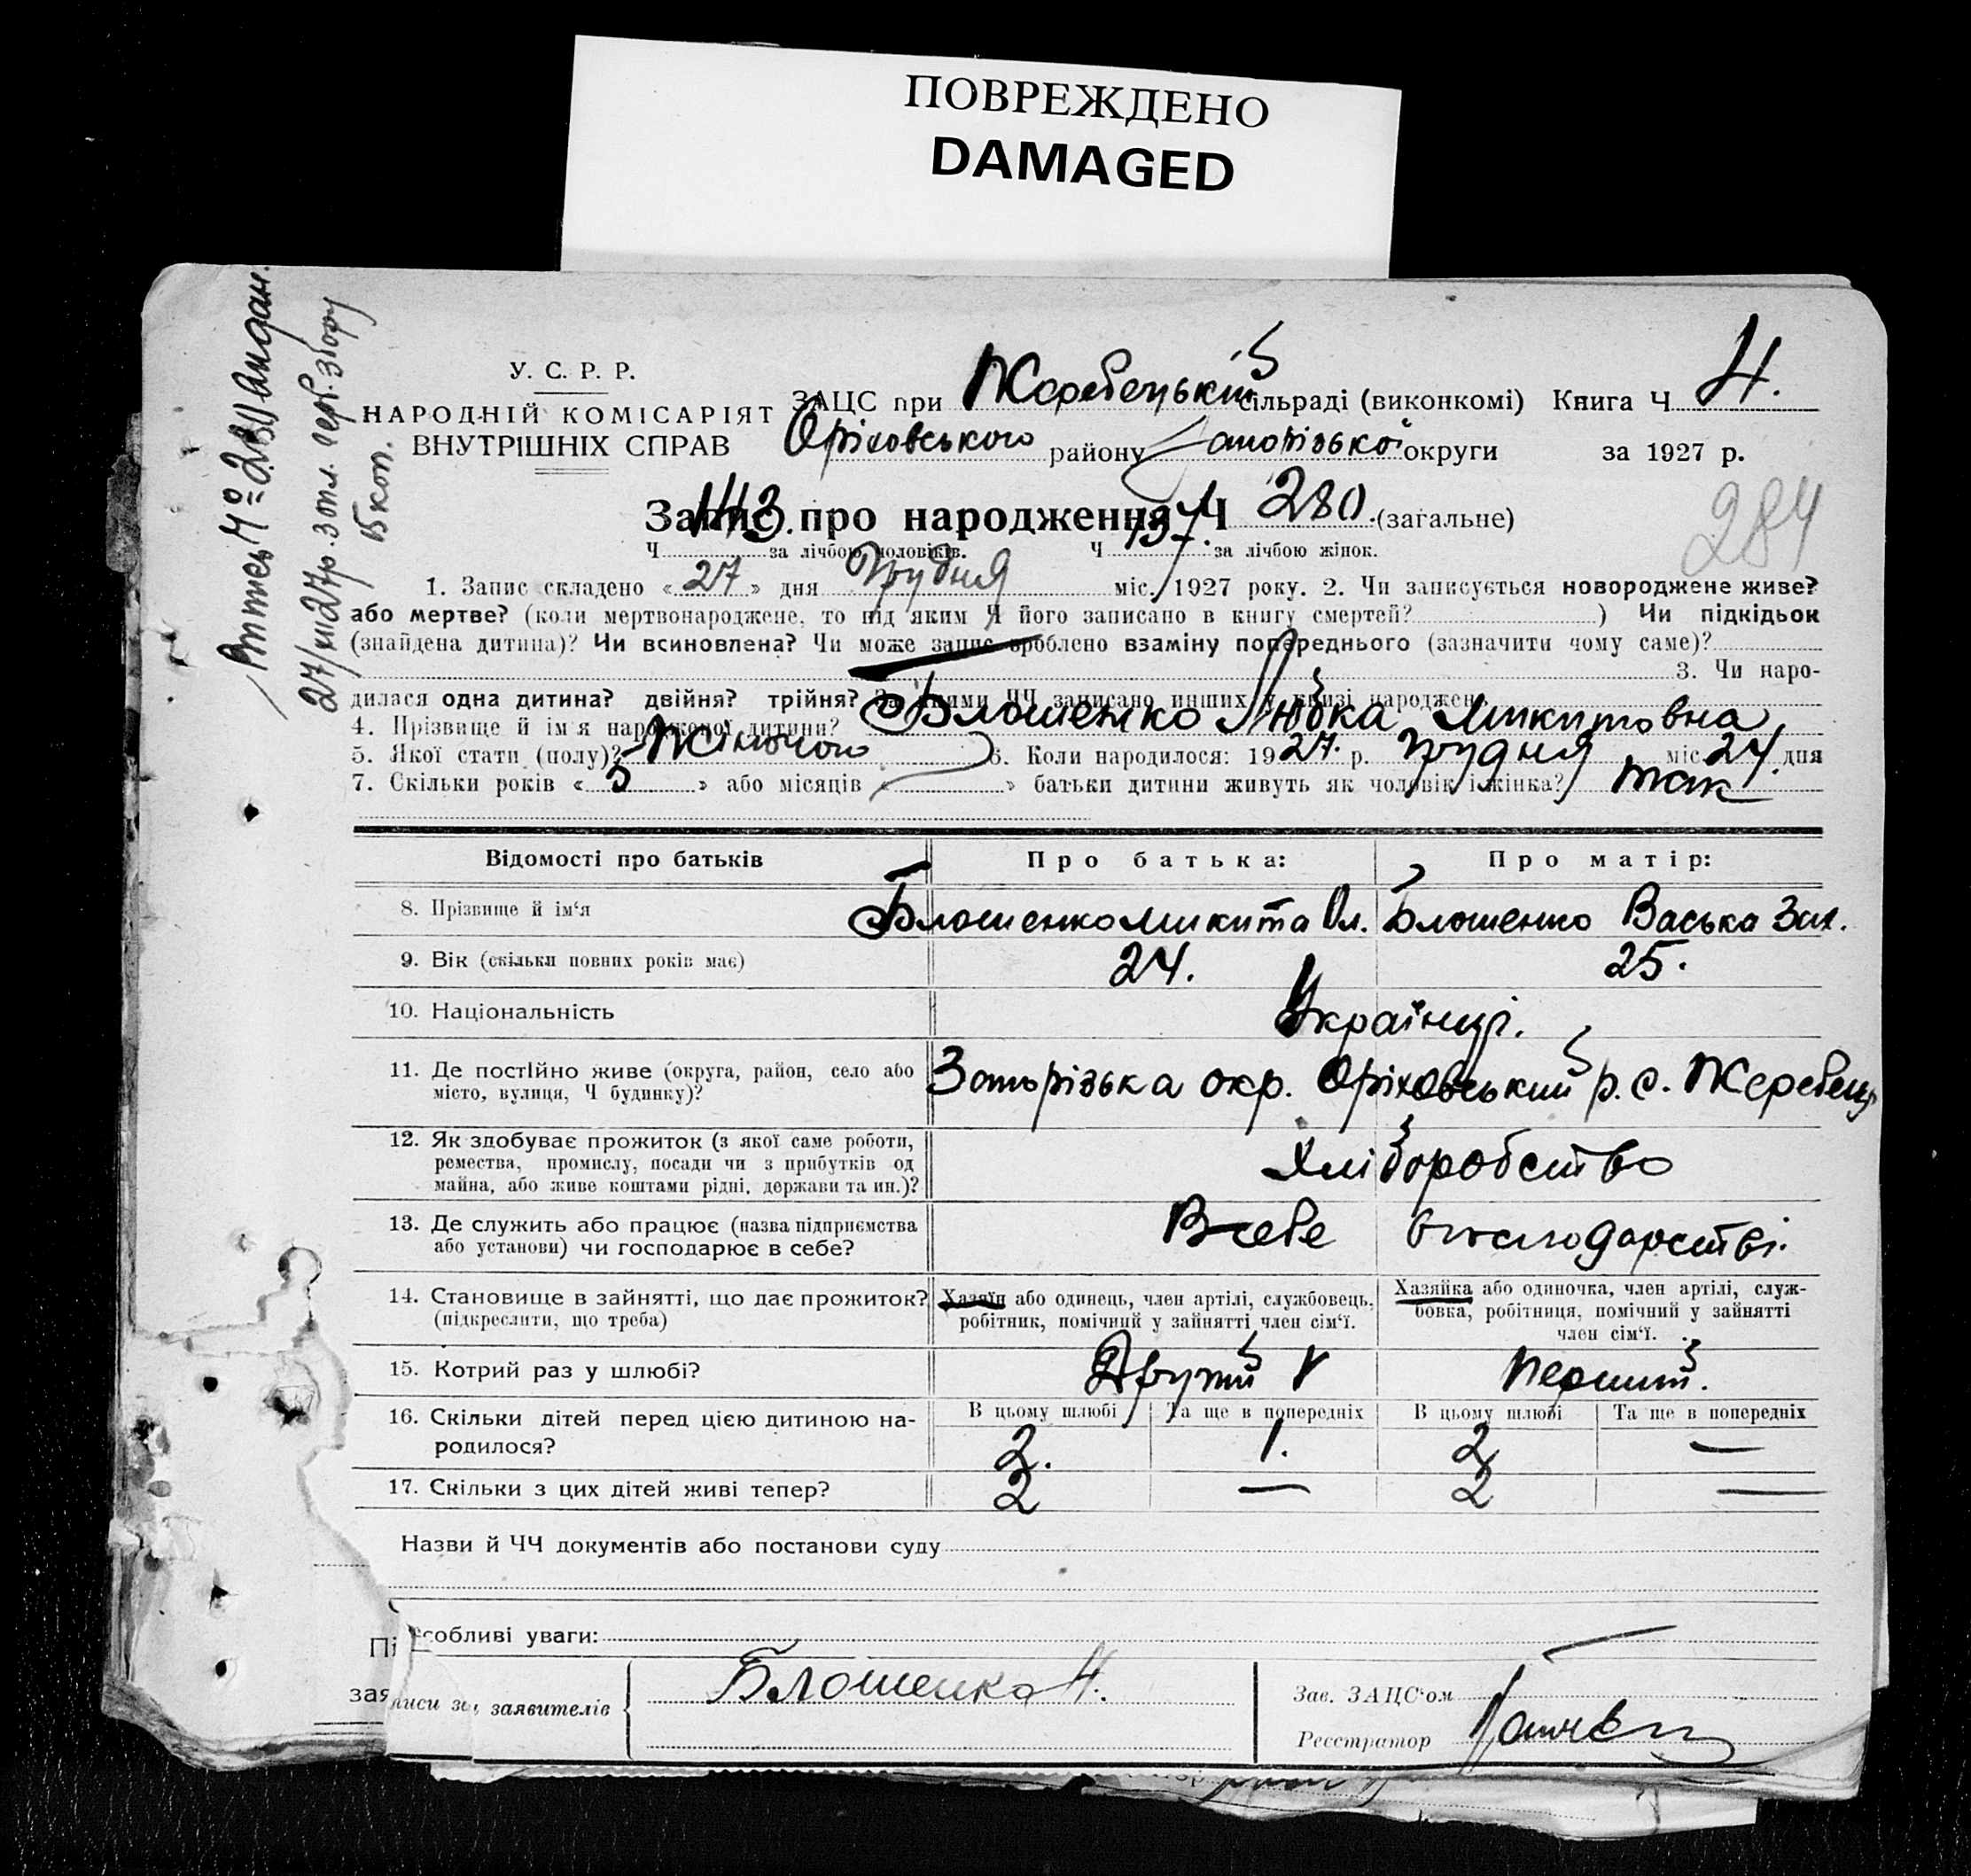 ПОВРЕЖДЕНО
DAMAGED
27/XII 27 р. зопл. герб. збору
15 коп.
У. С. Р. Р.
НАРОДНІЙ КОМІСАРІЯТ
ВНУТРІШНІХ СПРАВ
ЗАЦС при Жеребецькій сільраді (виконкомі) Книга Ч 4.
Оріховського району Запорізької округи за 1927 р.
Запис про народження Ч 280. (загальне)
284
Ч 143. за лічбою чоловіків. Ч 137. за лічбою жінок.
1. Запис складено « 27 » дня Грудня міс. 1927 року. 2. Чи записується новороджене живе?
або мертве? (коли мертвонароджене, то під яким Ч його записано в книгу смертей? ) Чи підкідьок
(знайдена дитина)? Чи всиновлена? Чи може запис зроблено взаміну попереднього (зазначити чому саме)?
3. Чи наро-
дилася одна дитина? двійня? трійня? За якими ЧЧ записано инших у книзі народжень
4. Прізвище й ім'я народженої дитини? Блошенко Любка Микитовна
5. Якої стати (полу)? Жіночого 6. Коли народилося: 1927. р. Грудня міс. 24. дня
7. Скільки років « 3 » або місяців « » батьки дитини живуть як чоловік і жінка? так
Відомості про батьків Про батька: Про матір:
8. Прізвище й ім'я Блошенко Микита Ол. Блошенко Васька Зах.
9. Вік (скільки повних років має) 24. 25.
10. Національність Українці.
11. Де постійно живе (округа, район, село або
місто, вулиця, Ч будинку)? Запорізька окр. Оріховський р. с. Жеребець
12. Як здобуває прожиток (з якої саме роботи,
ремества, промислу, посади чи з прибутків од
майна, або живе коштами рідні, держави та ин.)? Хліборобство
13. Де служить або працює (назва підприємства
або установи) чи господарює в себе? В себе в господарстві.
14. Становище в зайнятті, що дає прожиток?
(підкреслити, що треба)
Хазяїн або одинець, член артілі, службовець,
робітник, помічний у зайнятті член сім'ї.
Хазяйка або одиночка, член артілі, служ-
бовка, робітниця, помічний у зайнятті
член сім'ї.
15. Котрий раз у шлюбі? Другий Перший.
В цьому шлюбі Та ще в попередніх В цьому шлюбі Та ще в попередніх
16. Скільки дітей перед цією дитиною на-
родилося? 2. 1. 2 —
17. Скільки з цих дітей живі тепер? 2 — 2 —
Назви й ЧЧ документів або постанови суду
собливі уваги:
Пі
зая
писи за
заявителів
Блошенко Н.
Зав. ЗАЦС'ом
Реєстратор